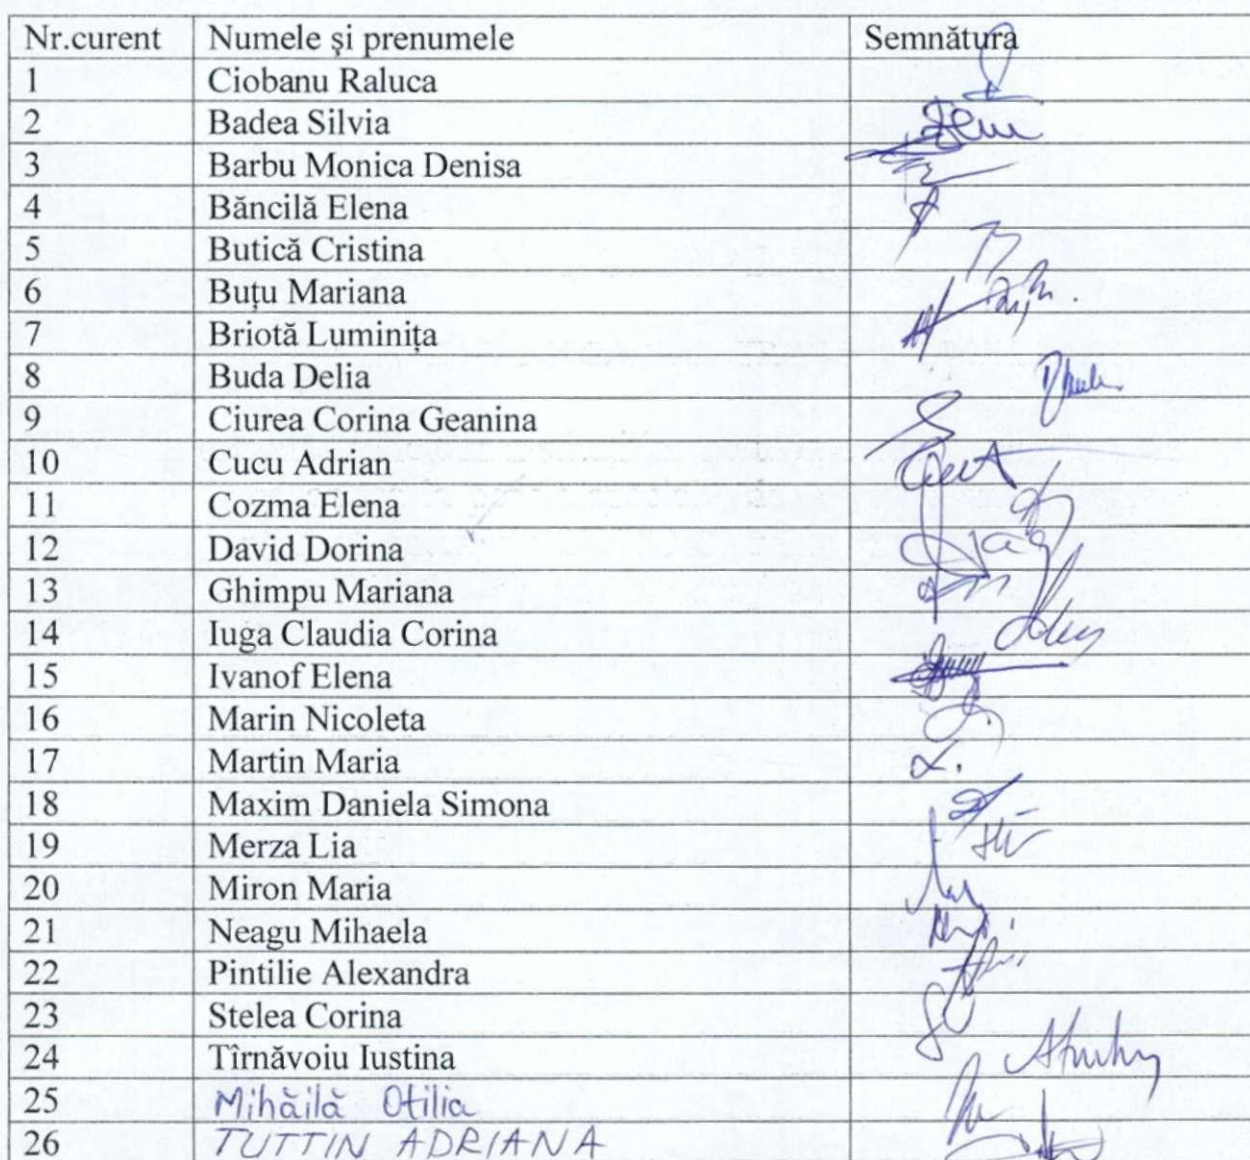 Nr.curent Numele şi prenumele Semnătura
1 Ciobanu Raluca
2 Badea Silvia
3 Barbu Monica Denisa
4 Băncilă Elena
5 Butică Cristina
6 Buțu Mariana
7 Briotă Luminița
8 Buda Delia
9 Ciurea Corina Geanina
10 Cucu Adrian
11 Cozma Elena
12 David Dorina
13 Ghimpu Mariana
14 Iuga Claudia Corina
15 Ivanof Elena
16 Marin Nicoleta
17 Martin Maria
18 Maxim Daniela Simona
19 Merza Lia
20 Miron Maria
21 Neagu Mihaela
22 Pintilie Alexandra
23 Stelea Corina
24 Tîrnăvoiu Iustina
25 Mihăilă Otilia
26 TUTTIN ADRIANA